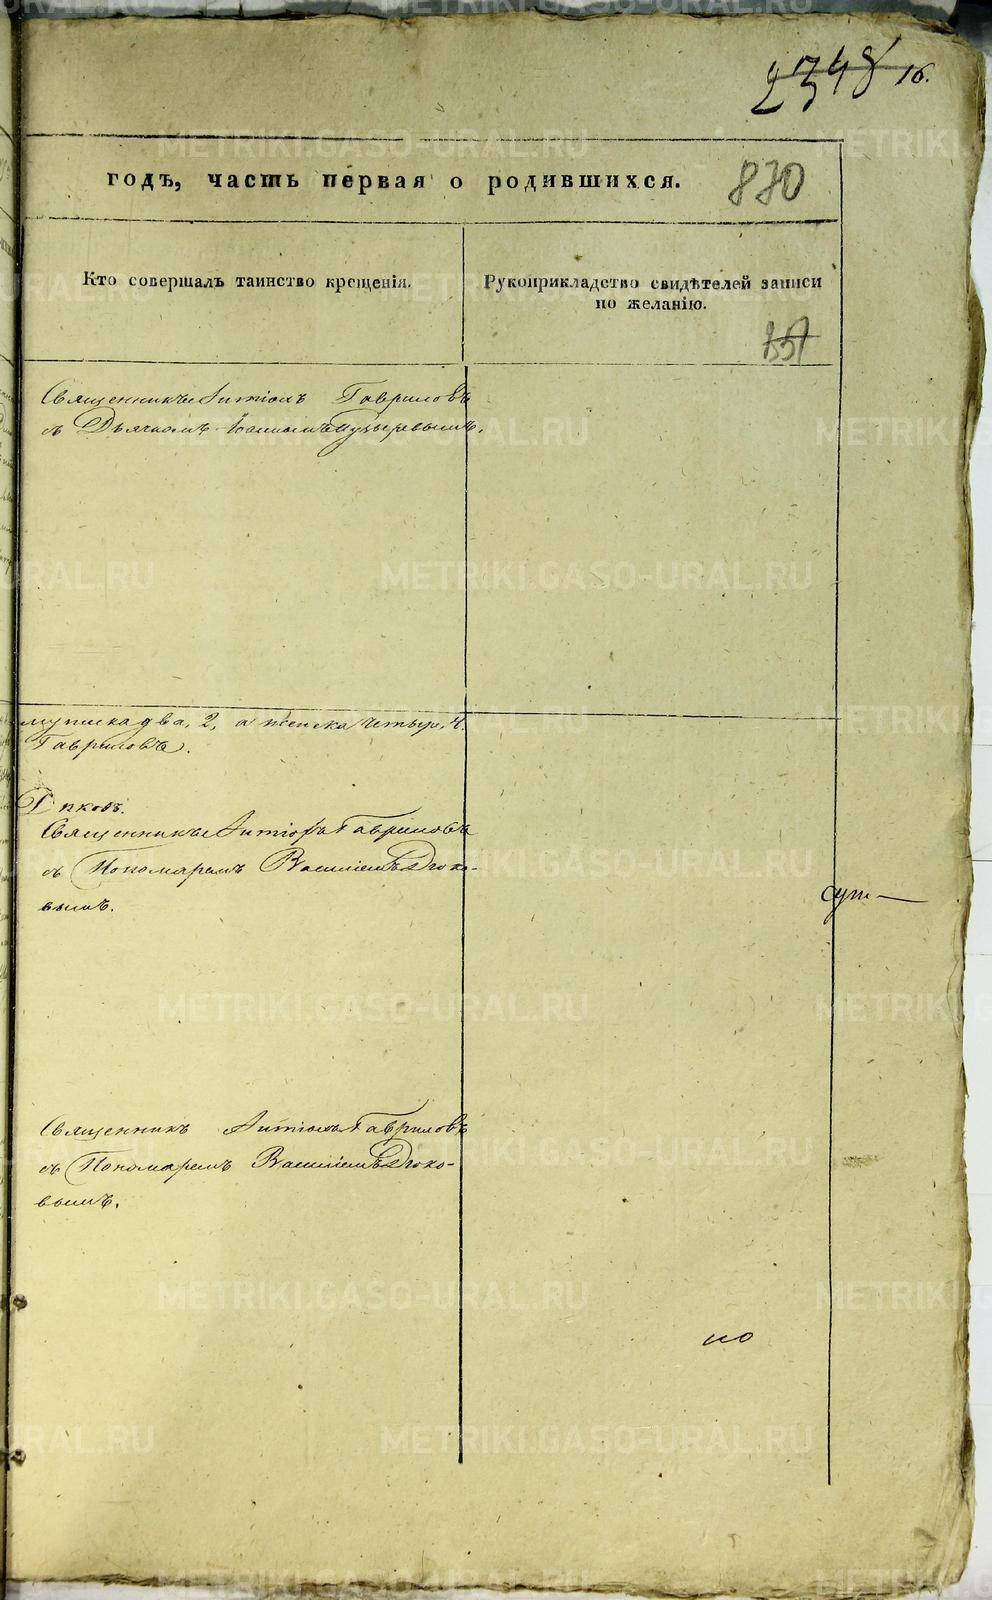 2348 16.
годъ, часть первая о родившихся. 830
Кто совершалъ таинство крещенія.
Рукоприкладство свидѣтелей записи
по желанію.
Священникъ Гавриловъ
съ Дьячкомъ Пузыревымъ.
мужеска два, 2, а женска четыр, 4.
Гавриловъ.
Священникъ Гавриловъ
съ Пономаремъ Василіемъ Дюко-
вымъ.
сут
Священникъ Гавриловъ
съ Пономаремъ Василіемъ Дюко-
вымъ.
но
METRIKI.GASO-URAL.RU